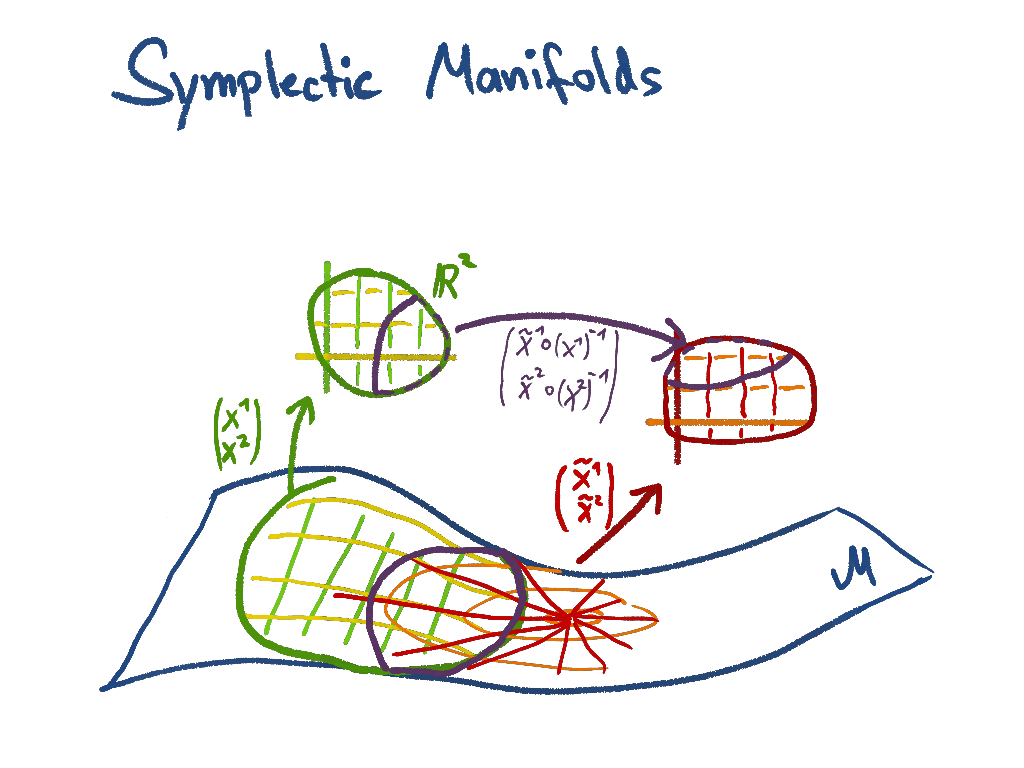 Symplectic Manifolds
ℝ²
(x̃¹∘(x¹)⁻¹
x̃²∘(x²)⁻¹)
(x¹
x²)
(x̃¹
x̃²)
M